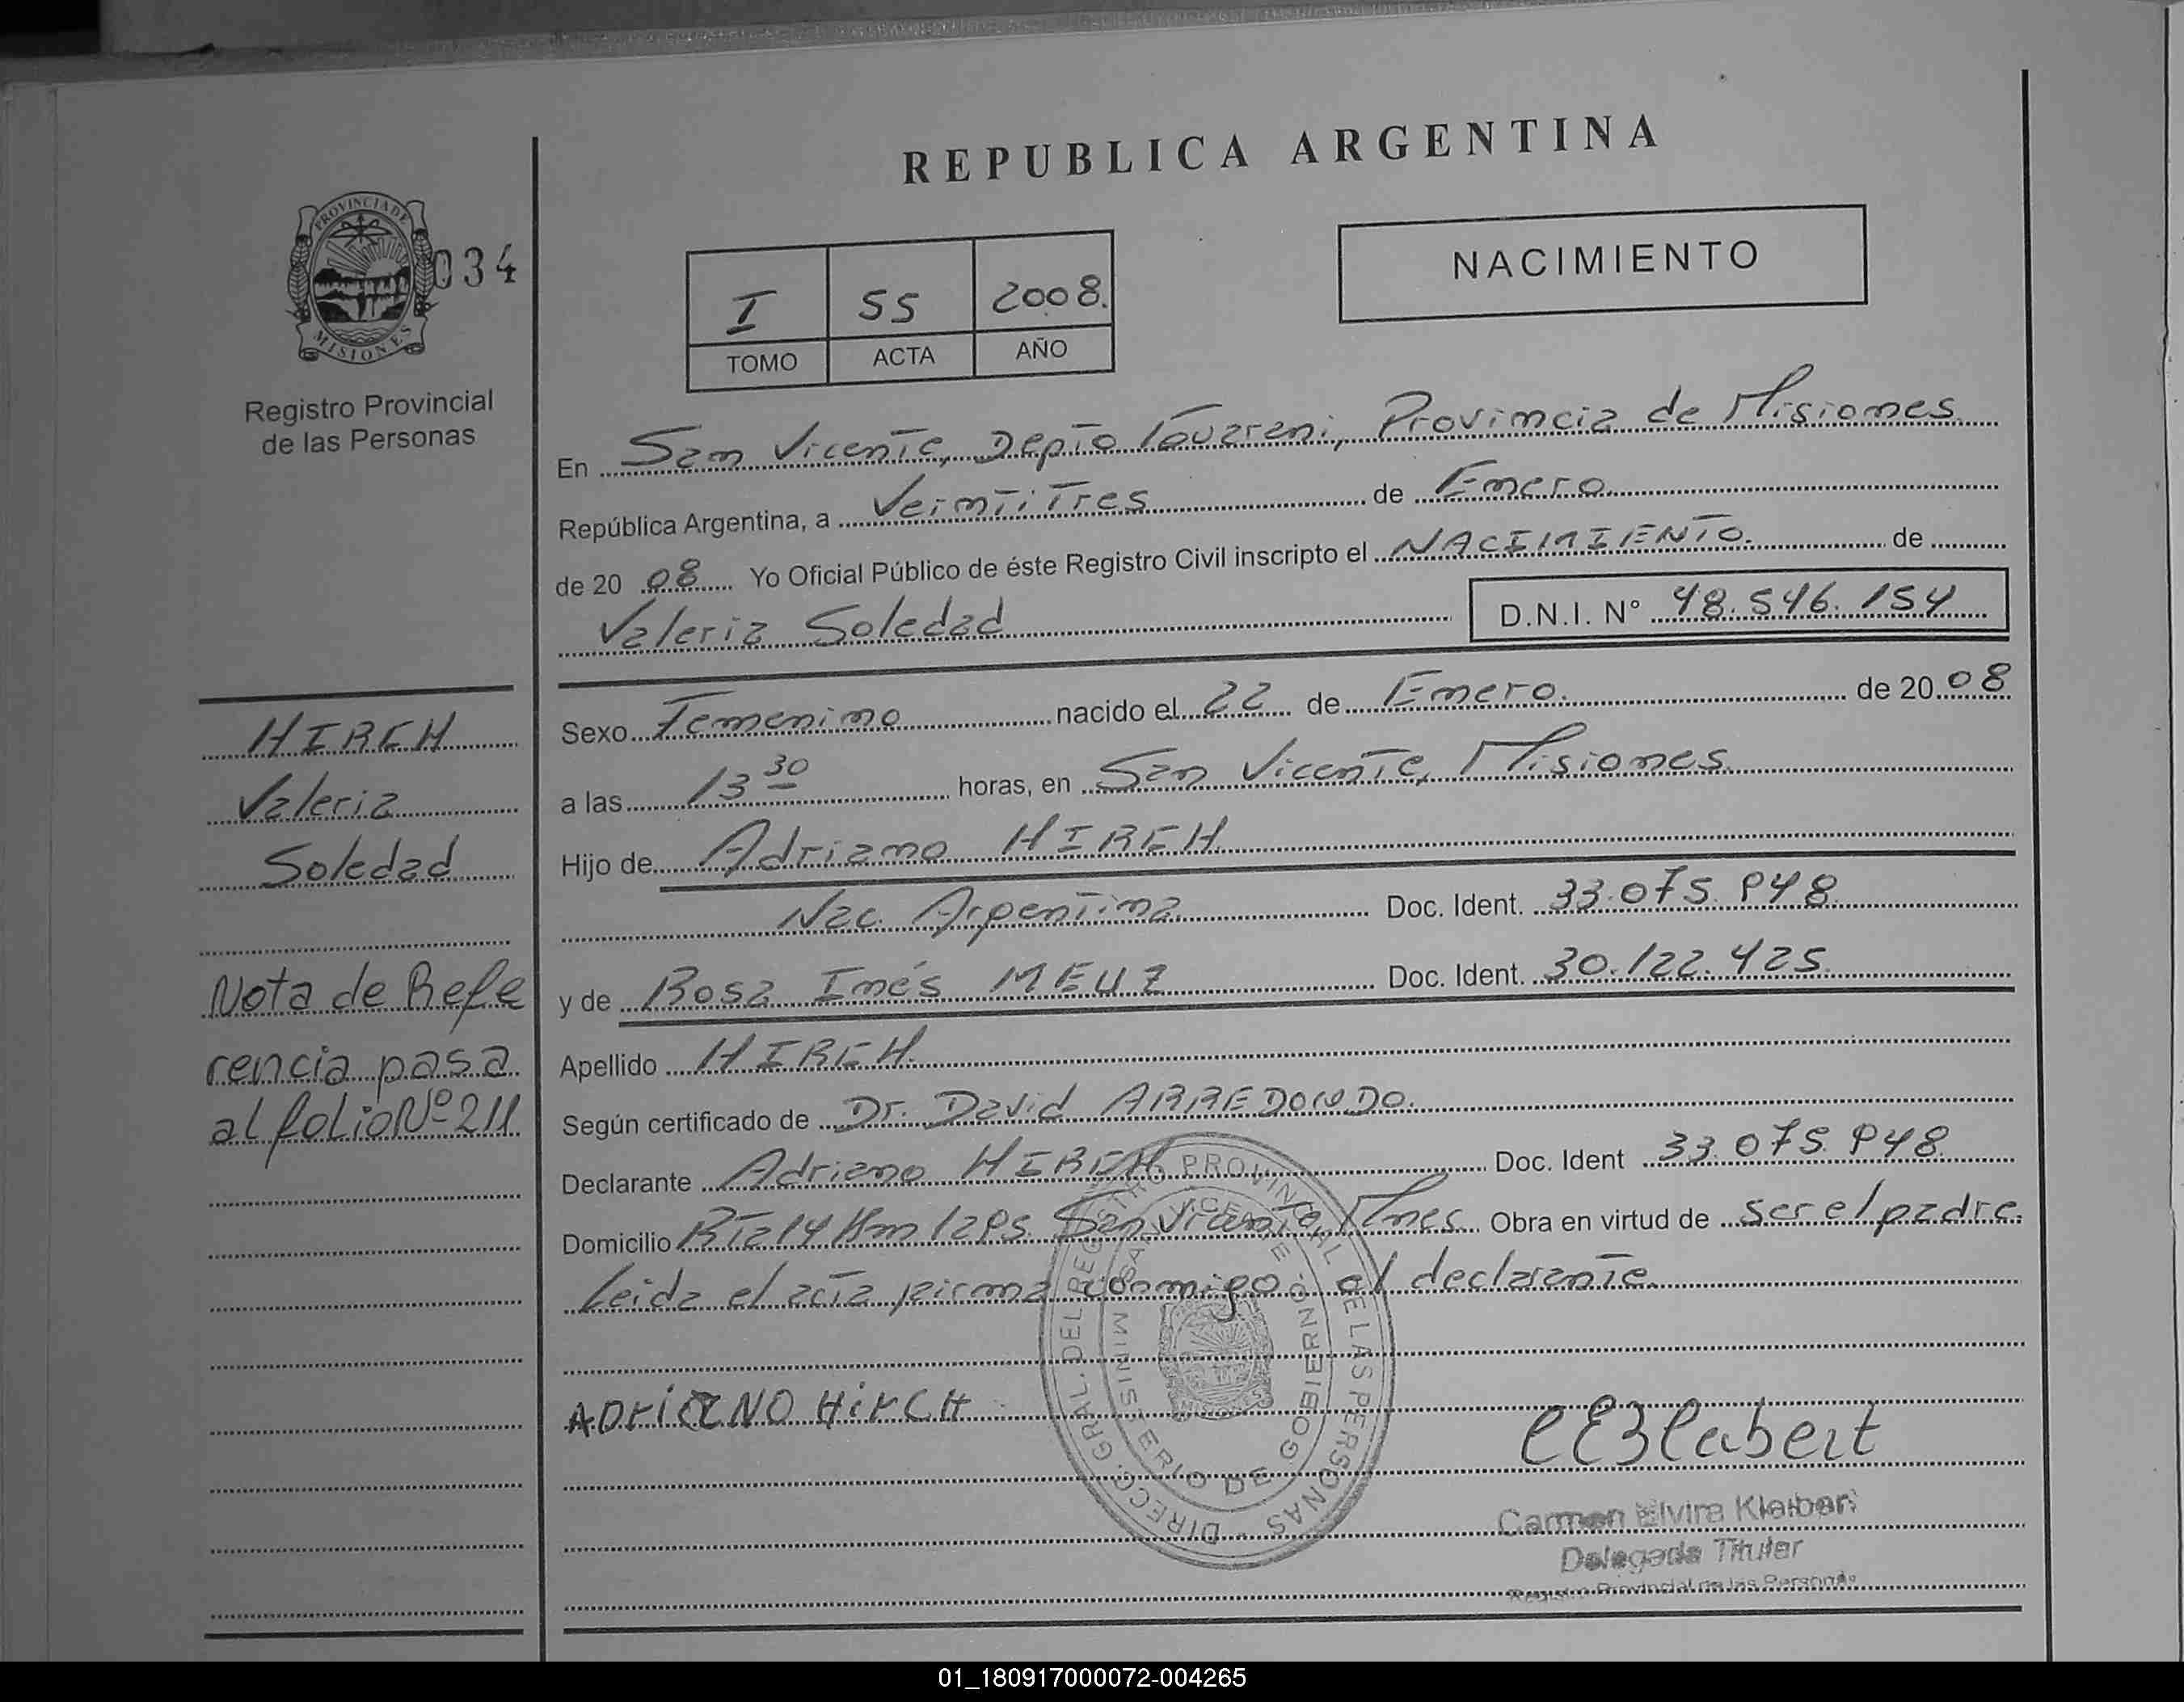 REPUBLICA ARGENTINA
PROVINCIA DE
MISIONES
034
Registro Provincial
de las Personas
I 55 2008.
TOMO ACTA AÑO
NACIMIENTO
En San Vicente, Depto Guarani, Provincia de Misiones.
República Argentina, a Veintitres de Enero.
de 20 08 Yo Oficial Público de éste Registro Civil inscripto el NACIMIENTO. de
Valeria Soledad D.N.I. N° 48.546.154
Sexo Femenino nacido el 22 de Enero. de 20 08
a las 13 30 horas, en San Vicente, Misiones.
Hijo de Adriano HIRCH.
Nac. Argentina. Doc. Ident. 33.075.948.
y de Rosa Inés MEUZ Doc. Ident. 30.122.425.
Apellido HIRCH.
Según certificado de Dr. David ARREDONDO.
Declarante Adriano HIRCH Doc. Ident 33.075.948.
Domicilio Rta 14 Km 1295. San Vicente, Mnes. Obra en virtud de ser el padre.
Leida el acta firma conmigo el declarante.
ADriaNO HirCH
Carmen Elvira
Delegada Titular
Registro Provincial de las Personas
HIRCH
Valeria
Soledad
Nota de Refe
rencia pasa
al folio Nº 211
DIRECC. GRAL. DEL REGISTRO PROVINCIAL DE LAS PERSONAS
MINISTERIO DE GOBIERNO
SAN VICENTE
01_180917000072-004265